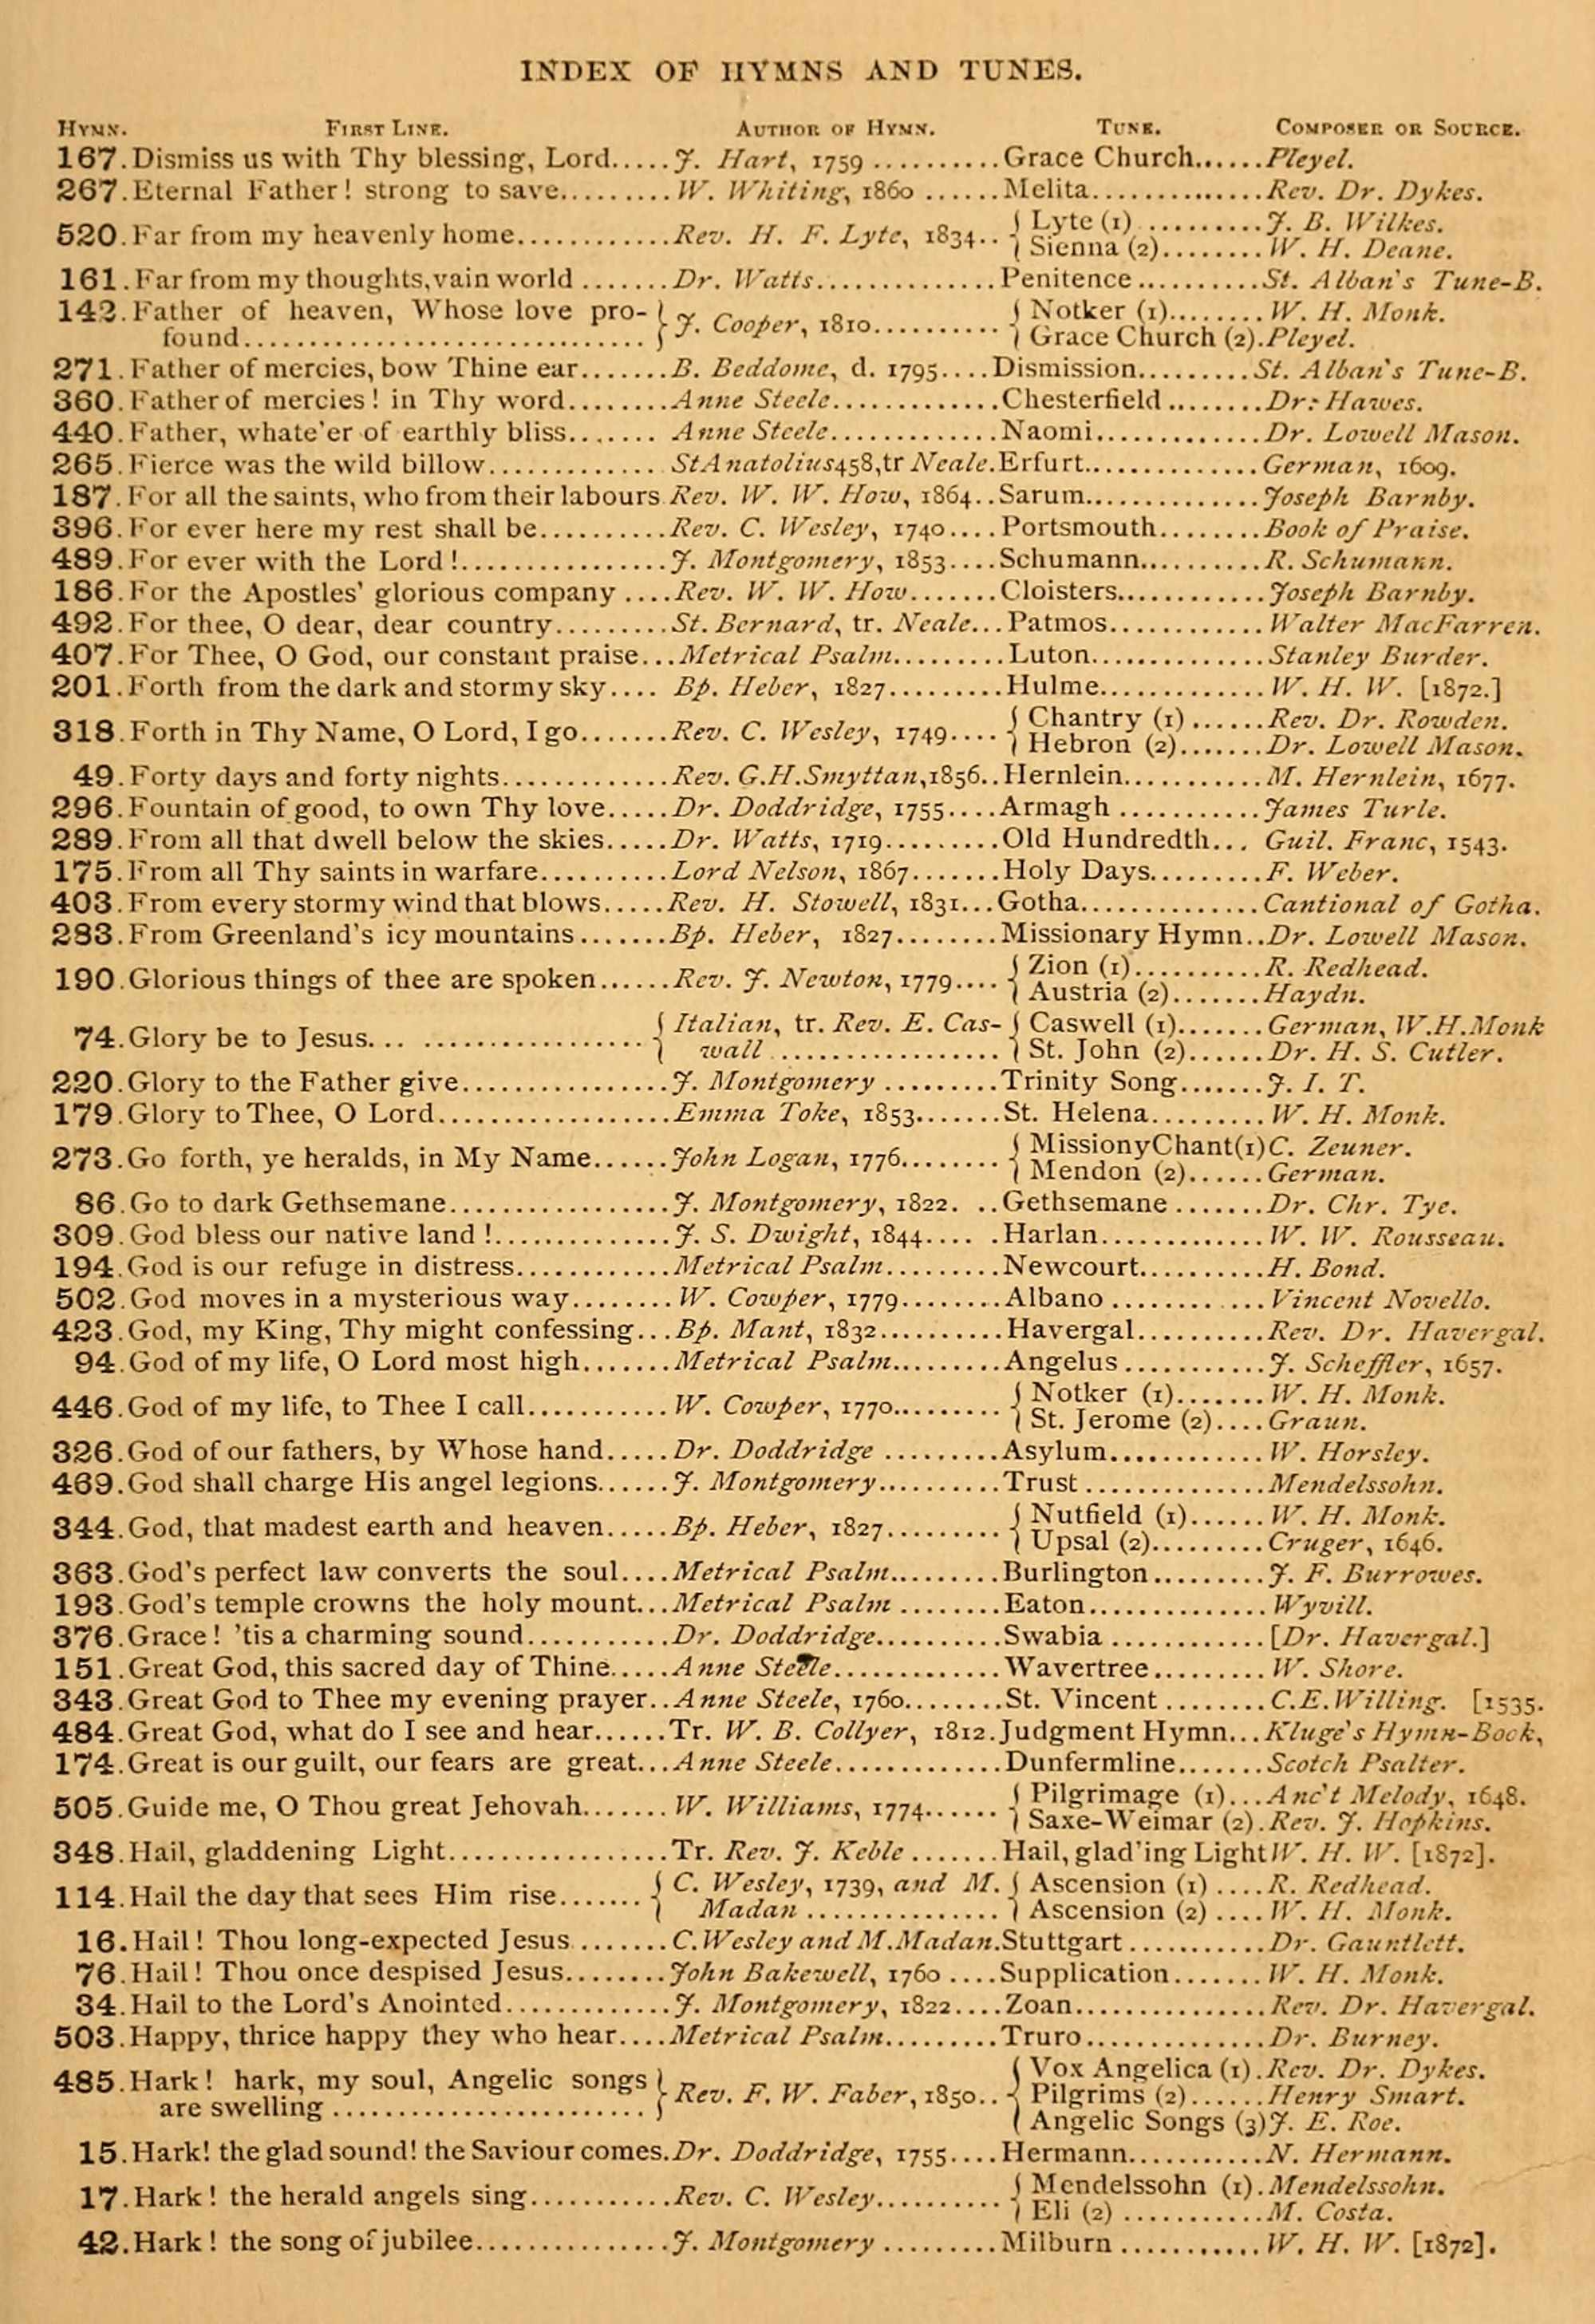 INDEX OF HYMNS AND TUNES.
HYMN. FIRST LINE. AUTHOR OF HYMN. TUNE. COMPOSER OR SOURCE.
167. Dismiss us with Thy blessing, Lord.....J. Hart, 1759 ..........Grace Church......Pleyel.
267. Eternal Father! strong to save.........W. Whiting, 1860 ......Melita..............Rev. Dr. Dykes.
520. Far from my heavenly home............Rev. H. F. Lyte, 1834.. { Lyte (1) ..........J. B. Wilkes.
{ Sienna (2)........W. H. Deane.
161. Far from my thoughts, vain world .......Dr. Watts..............Penitence ..........St. Alban's Tune-B.
142. Father of heaven, Whose love pro- } J. Cooper, 1810.......... { Notker (1)........W. H. Monk.
found............................. } { Grace Church (2).Pleyel.
271. Father of mercies, bow Thine ear.......B. Beddome, d. 1795....Dismission.........St. Alban's Tune-B.
360. Father of mercies! in Thy word........Anne Steele.............Chesterfield ........Dr. Hawes.
440. Father, whate'er of earthly bliss........Anne Steele.............Naomi.............Dr. Lowell Mason.
265. Fierce was the wild billow..............St Anatolius 458, tr Neale.Erfurt.............German, 1609.
187. For all the saints, who from their labours.Rev. W. W. How, 1864..Sarum.............Joseph Barnby.
396. For ever here my rest shall be..........Rev. C. Wesley, 1740....Portsmouth........Book of Praise.
489. For ever with the Lord!................J. Montgomery, 1853....Schumann..........R. Schumann.
186. For the Apostles' glorious company ....Rev. W. W. How.......Cloisters............Joseph Barnby.
492. For thee, O dear, dear country.........St. Bernard, tr. Neale...Patmos.............Walter MacFarren.
407. For Thee, O God, our constant praise...Metrical Psalm.........Luton..............Stanley Burder.
201. Forth from the dark and stormy sky....Bp. Heber, 1827.........Hulme.............W. H. W. [1872.]
318. Forth in Thy Name, O Lord, I go.......Rev. C. Wesley, 1749.... { Chantry (1) ......Rev. Dr. Rowden.
{ Hebron (2).......Dr. Lowell Mason.
49. Forty days and forty nights............Rev. G.H.Smyttan,1856..Hernlein............M. Hernlein, 1677.
296. Fountain of good, to own Thy love.....Dr. Doddridge, 1755....Armagh ...........James Turle.
289. From all that dwell below the skies.....Dr. Watts, 1719.........Old Hundredth...Guil. Franc, 1543.
175. From all Thy saints in warfare..........Lord Nelson, 1867.......Holy Days.........F. Weber.
403. From every stormy wind that blows.....Rev. H. Stowell, 1831...Gotha..............Cantional of Gotha.
283. From Greenland's icy mountains.......Bp. Heber, 1827........Missionary Hymn..Dr. Lowell Mason.
190. Glorious things of thee are spoken......Rev. J. Newton, 1779.... { Zion (1)..........R. Redhead.
{ Austria (2).......Haydn.
74. Glory be to Jesus... ................. { Italian, tr. Rev. E. Cas- { Caswell (1).......German, W.H.Monk
{ wall .................. { St. John (2)......Dr. H. S. Cutler.
220. Glory to the Father give................J. Montgomery .........Trinity Song.......J. I. T.
179. Glory to Thee, O Lord..................Emma Toke, 1853.......St. Helena.........W. H. Monk.
273. Go forth, ye heralds, in My Name......John Logan, 1776........ { MissionyChant(1)C. Zeuner.
{ Mendon (2)......German.
86. Go to dark Gethsemane................J. Montgomery, 1822. ..Gethsemane .......Dr. Chr. Tye.
309. God bless our native land!.............J. S. Dwight, 1844.... .Harlan.............W. W. Rousseau.
194. God is our refuge in distress............Metrical Psalm.........Newcourt..........H. Bond.
502. God moves in a mysterious way........W. Cowper, 1779........Albano .............Vincent Novello.
423. God, my King, Thy might confessing...Bp. Mant, 1832..........Havergal..........Rev. Dr. Havergal.
94. God of my life, O Lord most high.......Metrical Psalm.........Angelus ...........J. Scheffler, 1657.
446. God of my life, to Thee I call...........W. Cowper, 1770......... { Notker (1).......W. H. Monk.
{ St. Jerome (2)....Graun.
326. God of our fathers, by Whose hand.....Dr. Doddridge .........Asylum............W. Horsley.
469. God shall charge His angel legions......J. Montgomery..........Trust ..............Mendelssohn.
344. God, that madest earth and heaven.....Bp. Heber, 1827......... { Nutfield (1)......W. H. Monk.
{ Upsal (2).........Cruger, 1646.
363. God's perfect law converts the soul....Metrical Psalm.........Burlington.........J. F. Burrowes.
193. God's temple crowns the holy mount...Metrical Psalm ........Eaton..............Wyvill.
376. Grace! 'tis a charming sound...........Dr. Doddridge..........Swabia ............[Dr. Havergal.]
151. Great God, this sacred day of Thine.....Anne Steele.............Wavertree.........W. Shore.
343. Great God to Thee my evening prayer..Anne Steele, 1760........St. Vincent ........C.E.Willing. [1535.
484. Great God, what do I see and hear......Tr. W. B. Collyer, 1812.Judgment Hymn...Kluge's Hymn-Book,
174. Great is our guilt, our fears are great...Anne Steele.............Dunfermline.......Scotch Psalter.
505. Guide me, O Thou great Jehovah.......W. Williams, 1774...... { Pilgrimage (1)...Anc't Melody, 1648.
{ Saxe-Weimar (2).Rev. J. Hopkins.
348. Hail, gladdening Light.................Tr. Rev. J. Keble .......Hail, glad'ing Light W. H. W. [1872].
114. Hail the day that sees Him rise....... { C. Wesley, 1739, and M. { Ascension (1) ....R. Redhead.
{ Madan ............... { Ascension (2) ....W. H. Monk.
16. Hail! Thou long-expected Jesus ........C. Wesley and M.Madan.Stuttgart ...........Dr. Gauntlett.
76. Hail! Thou once despised Jesus.........John Bakewell, 1760 ....Supplication.......W. H. Monk.
34. Hail to the Lord's Anointed............J. Montgomery, 1822....Zoan...............Rev. Dr. Havergal.
503. Happy, thrice happy they who hear....Metrical Psalm.........Truro..............Dr. Burney.
485. Hark! hark, my soul, Angelic songs } Rev. F. W. Faber, 1850.. { Vox Angelica (1).Rev. Dr. Dykes.
are swelling ....................... } { Pilgrims (2)......Henry Smart.
{ Angelic Songs (3)J. E. Roe.
15. Hark! the glad sound! the Saviour comes.Dr. Doddridge, 1755....Hermann...........N. Hermann.
17. Hark! the herald angels sing...........Rev. C. Wesley.......... { Mendelssohn (1).Mendelssohn.
{ Eli (2) ...........M. Costa.
42. Hark! the song of jubilee..............J. Montgomery .........Milburn ...........W. H. W. [1872].